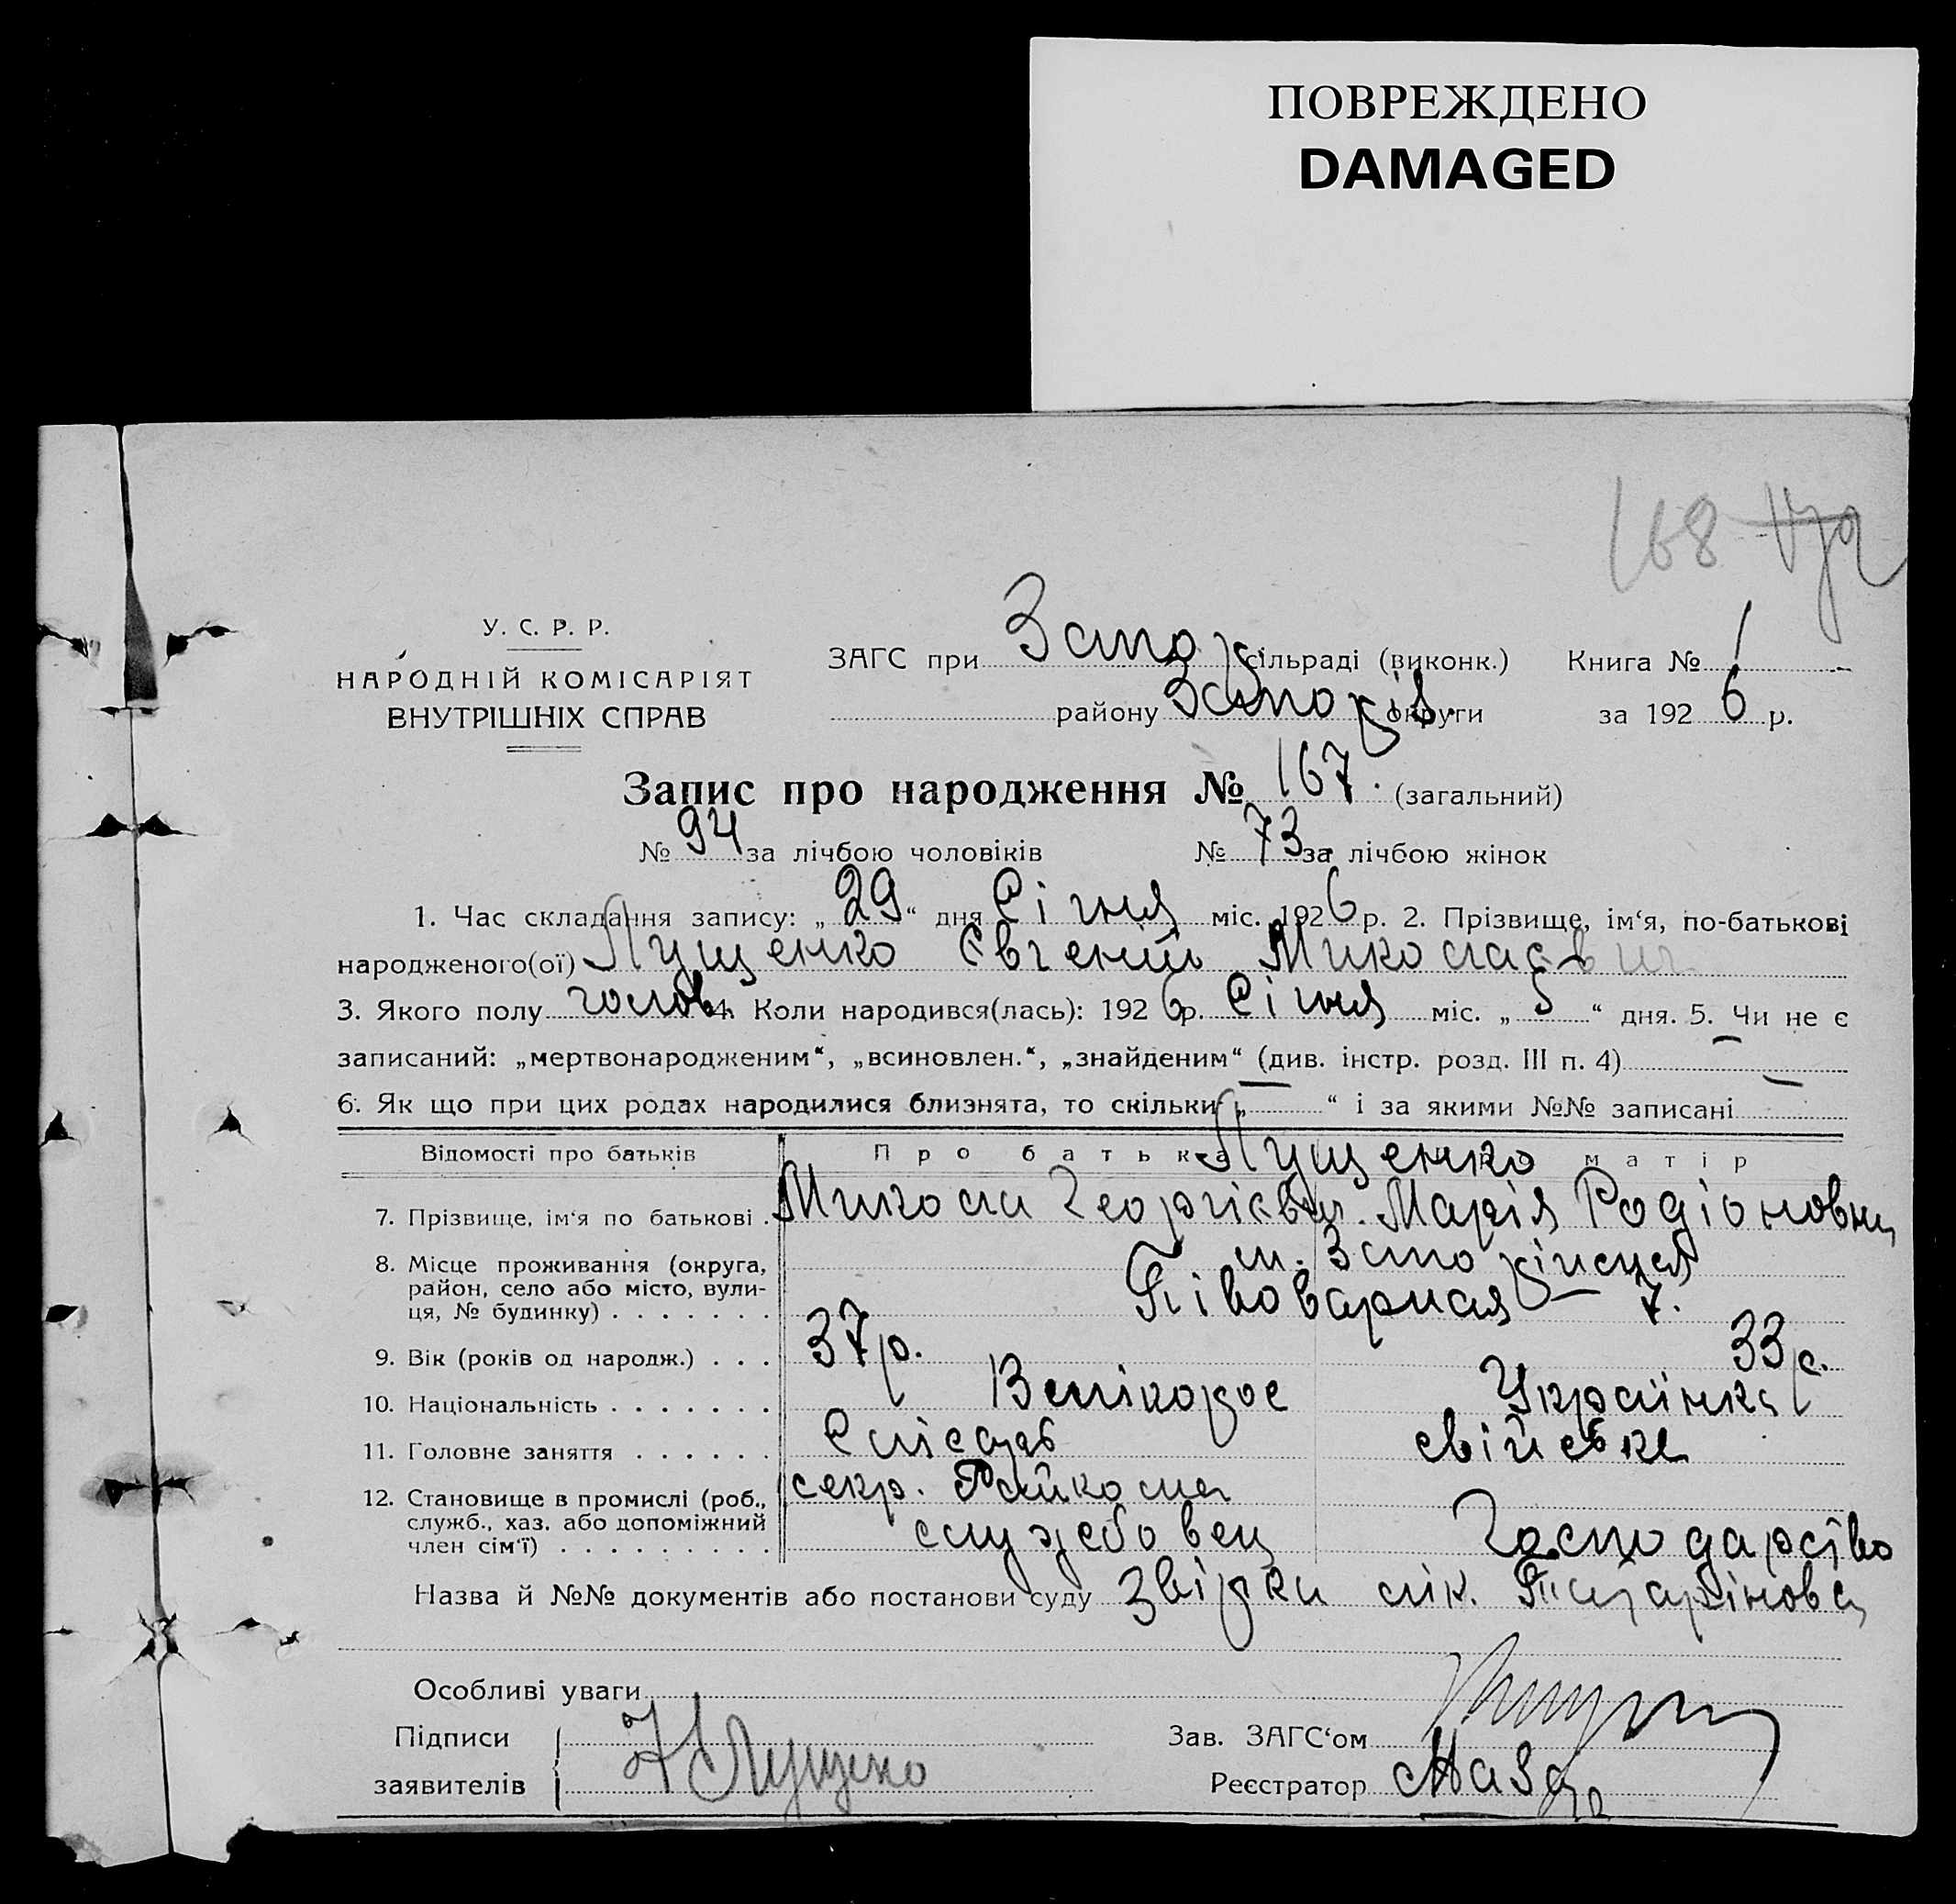 ПОВРЕЖДЕНО
DAMAGED
168
У. С. Р. Р.
НАРОДНІЙ КОМІСАРІЯТ
ВНУТРІШНІХ СПРАВ
ЗАГС при Запор сільраді (виконк.) Книга № 1
району Запоріз. округи за 1926 р.
Запис про народження № 167. (загальний)
№ 94 за лічбою чоловіків № 73 за лічбою жінок
1. Час складання запису: „29“ дня Січня міс. 1926 р. 2. Прізвище, ім‘я, по-батькові
народженого(ої) Лущенко Євгеній Миколаєвич
3. Якого полу чолов. 4. Коли народився(лась): 1926 р. Січня міс. „5“ дня. 5. Чи не є
записаний: „мертвонародженим“, „всиновлен.“, „знайденим“ (див. інстр. розд. III п. 4) —
6. Як що при цих родах народилися близнята, то скільки „—“ і за якими №№ записані —
Відомості про батьків Про батька Лущенко матір
7. Прізвище, ім‘я по батькові . Микола Георгієвич. Марія Родіоновна
8. Місце проживання (округа,
район, село або місто, вули-
ця, № будинку) . . . . . . .
м. Запоріжжя
Півоварная — 7.
9. Вік (років од народж.) . . . 37 р. 33 р.
10. Національність . . . . . . . Велікорос Українка
11. Головне заняття . . . . . . Слісарь свійське
12. Становище в промислі (роб.,
служб., хаз. або допоміжний
член сім‘ї) . . . . . . . . . .
секр. Райкома
служебовец Господарство
Назва й №№ документів або постанови суду Звірки лік.
Особливі уваги
Підписи
заявителів
Лущенко
Зав. ЗАГС‘ом
Реєстратор